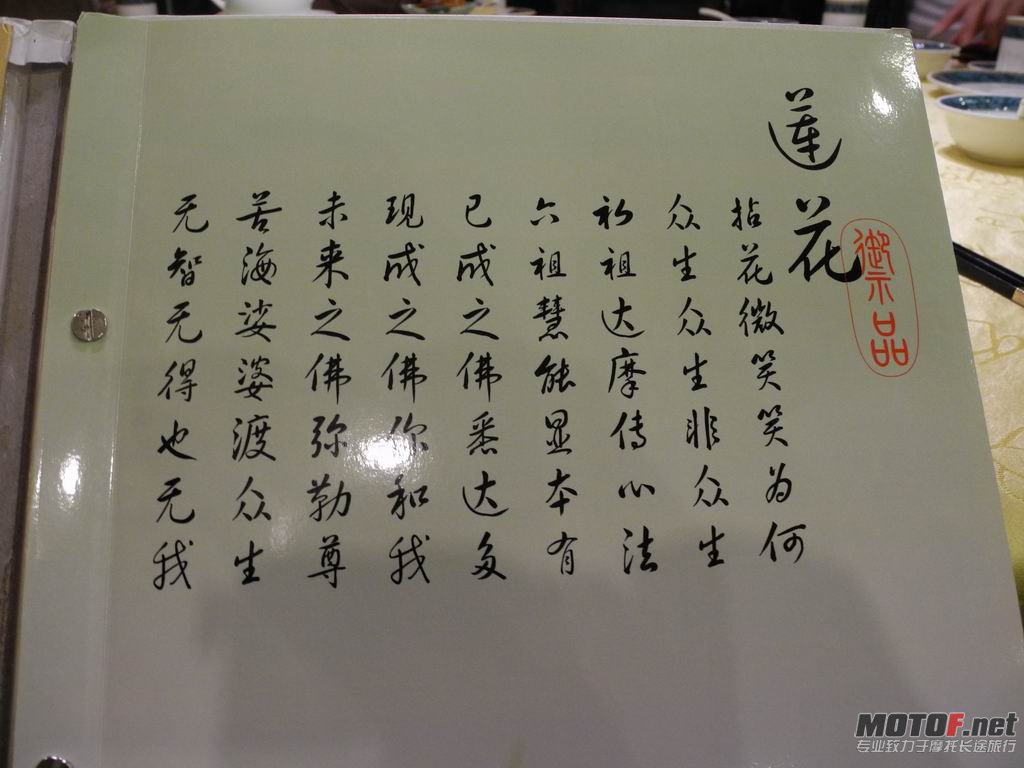 莲花
御品
拈花微笑笑为何
众生众生非众生
初祖达摩传心法
六祖慧能显本有
已成之佛悉达多
现成之佛你和我
未来之佛弥勒尊
苦海娑婆渡众生
无智无得也无我
MOTOF.net
专业致力于摩托长途旅行